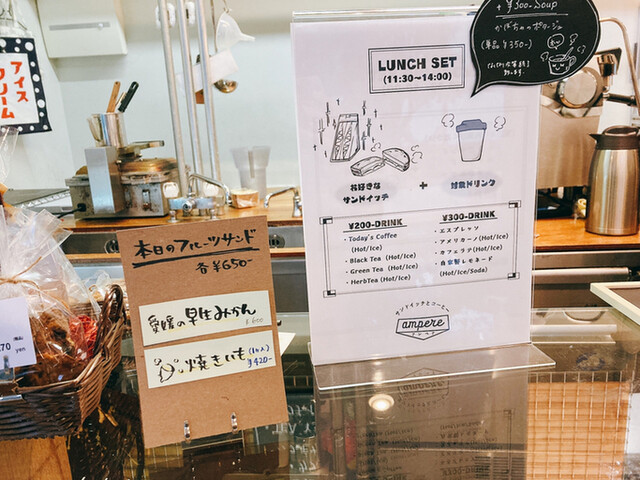 アイス
クリーム
70
yen
本日のフルーツサンド
各¥650-
愛媛の早生みかん
¥600
焼きいも(1コ入)
¥420-
+¥300-Soup
かぼちゃのポタージュ
(単品¥350-)
LUNCH SET
(11:30~14:00)
お好きな
サンドイッチ
+
対象ドリンク
¥200-DRINK
・Today's Coffee
(Hot/Ice)
・Black Tea (Hot/Ice)
・Green Tea (Hot/Ice)
・HerbTea (Hot/Ice)
¥300-DRINK
・エスプレッソ
・アメリカーノ(Hot/Ice)
・カフェラテ(Hot/Ice)
・自家製レモネード
(Hot/Ice/Soda)
サンドイッチとコーヒー
ampere
アンペア